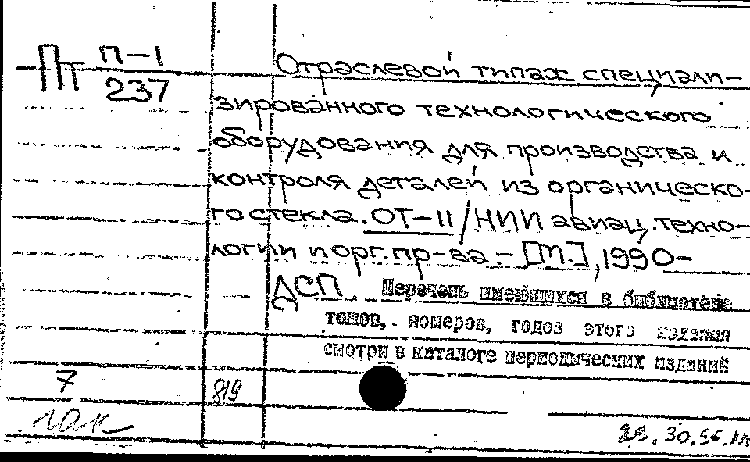 Пт П-1
237
Отраслевой типаж специали-
зированного технологического
оборудования для производства и
контроля деталей из органическо-
го стекла. ОТ-11/НИИ авиац. техно-
логии и орг. пр-ва - [М.], 1990-
ДСП Перечень имеющихся в библиотеке
томов, номеров, годов этого издания
смотри в каталоге периодических изданий
7
819